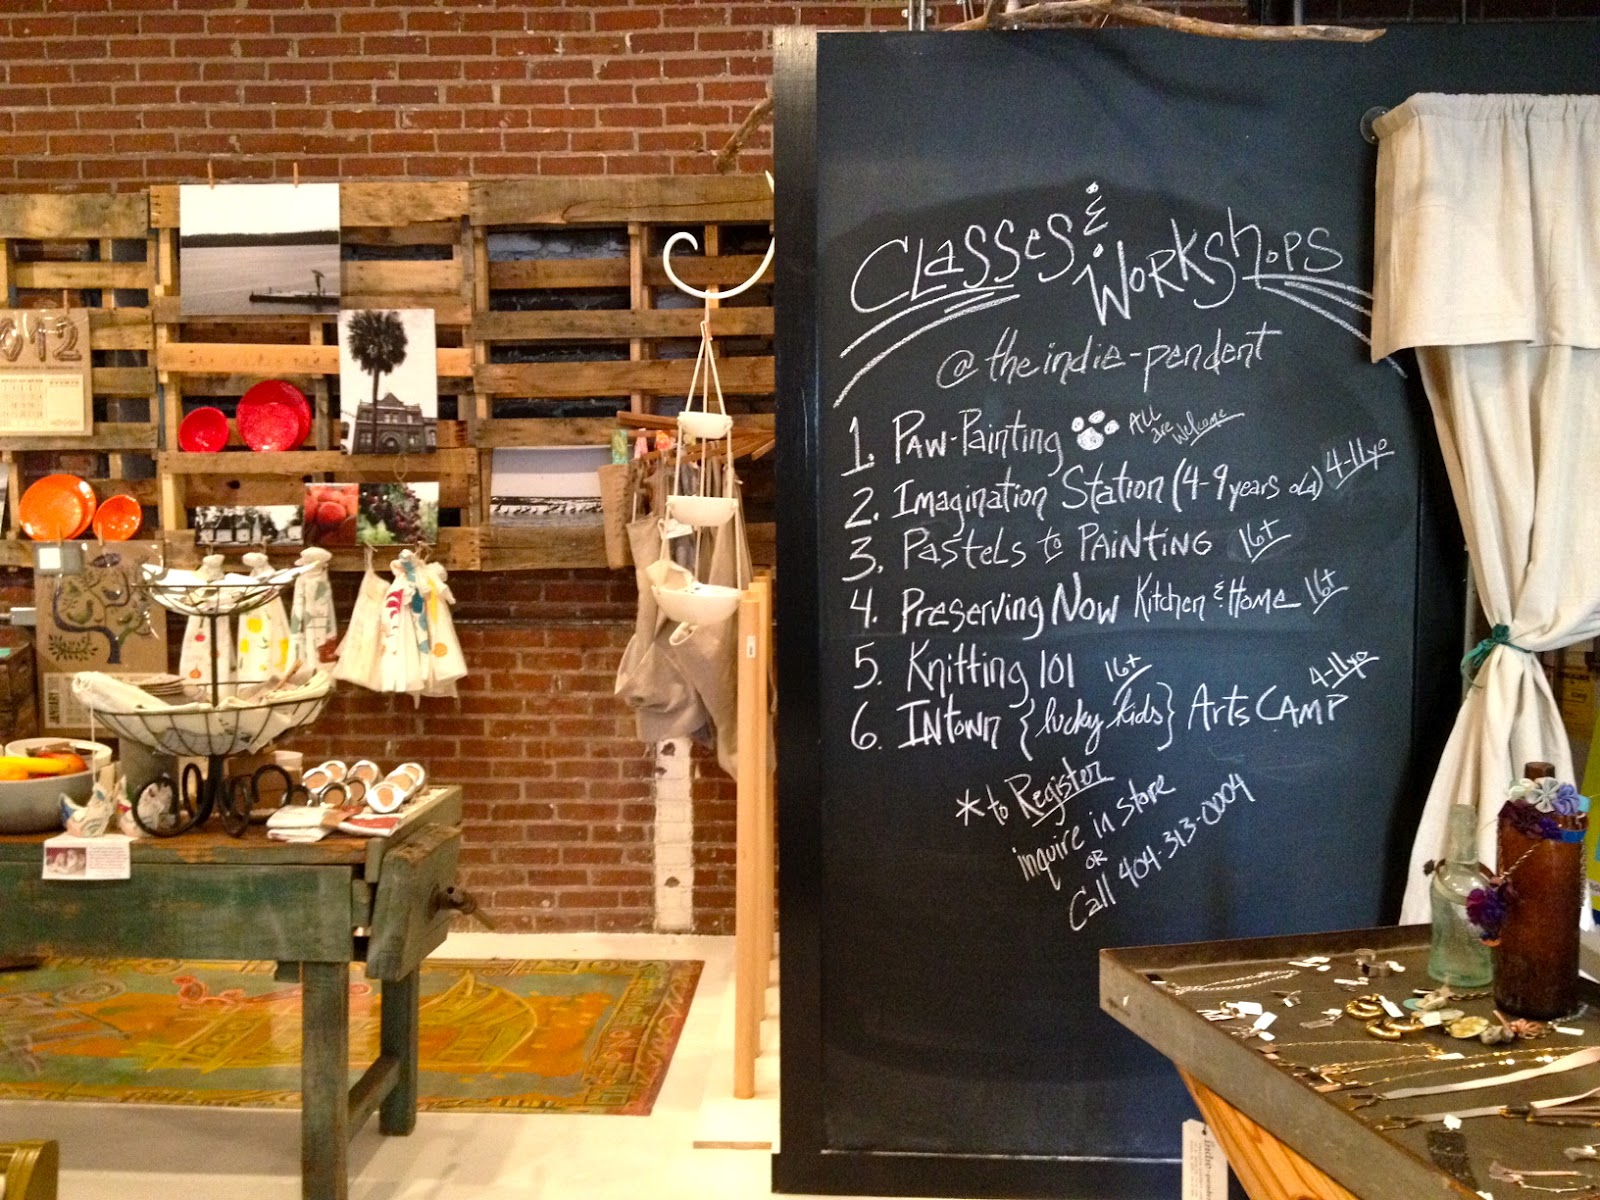 Classes &
Workshops
@ the indie-pendent
1. Paw-Painting All are Welcome
2. Imagination Station (4-9 years old) 4-11yo
3. Pastels to Painting 16+
4. Preserving Now Kitchen & Home 16+
5. Knitting 101 16+
6. INtown {lucky kids} Arts CAMP 4-11yo
* to Register
inquire in store
OR
Call 404-313-0004
2012
JANUARY